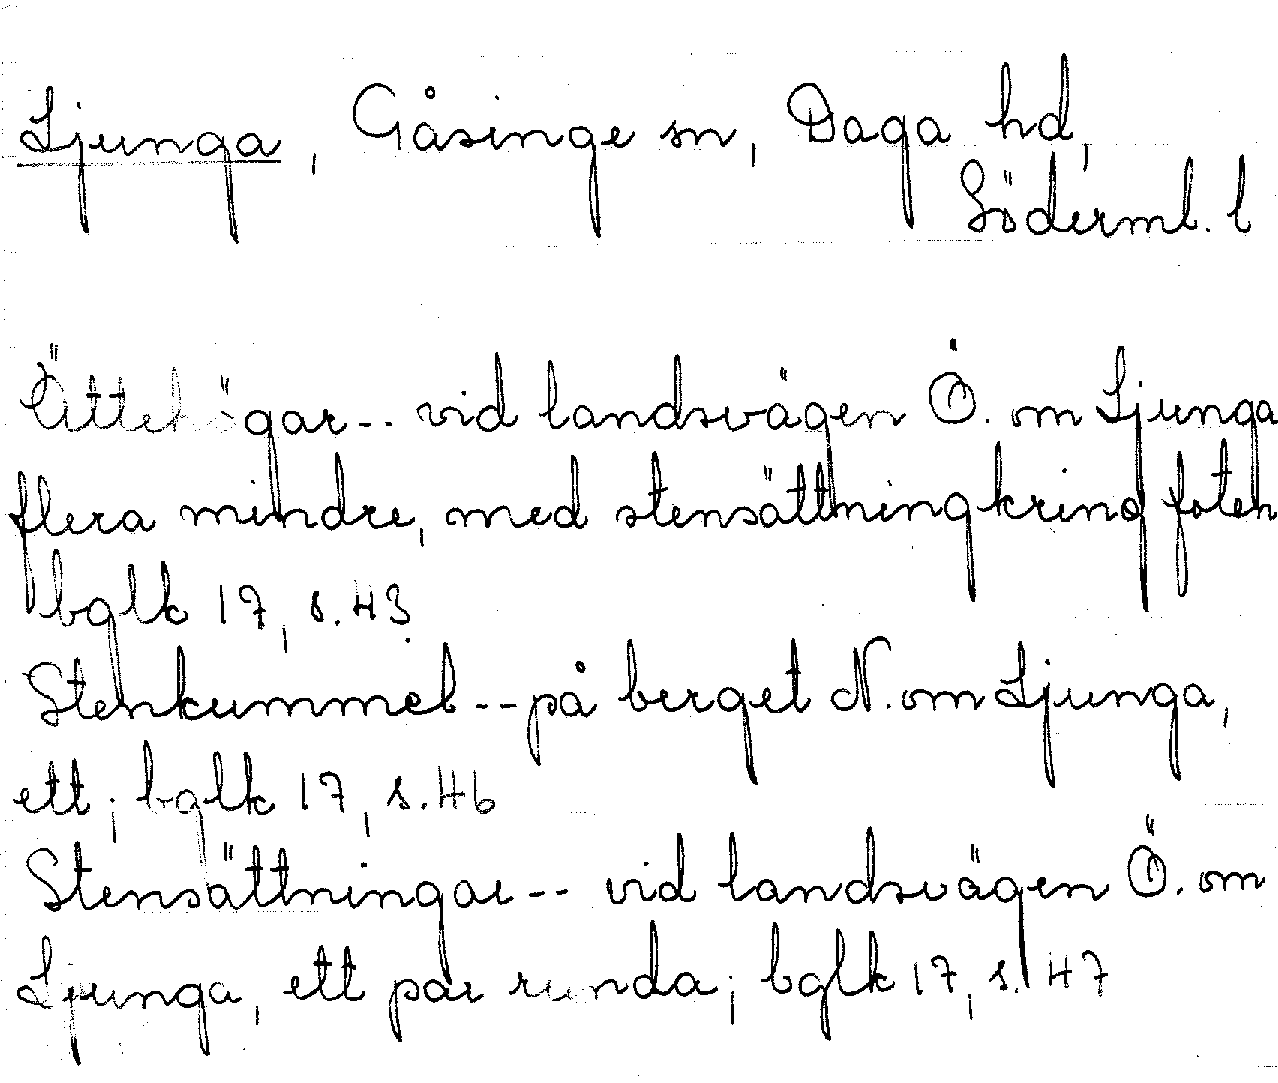 Ljunga, Gåsinge sn, Daga hd,
Söderml. l
Ättehögar-- vid landsvägen Ö. om Ljunga
flera mindre, med stensättning kring foten
bglk 17, s. 43
Stenkummel--på berget N. om Ljunga,
ett; bglk 17, s. 46
Stensättningar-- vid landsvägen Ö. om
Ljunga, ett par runda; bglk 17, s. 47